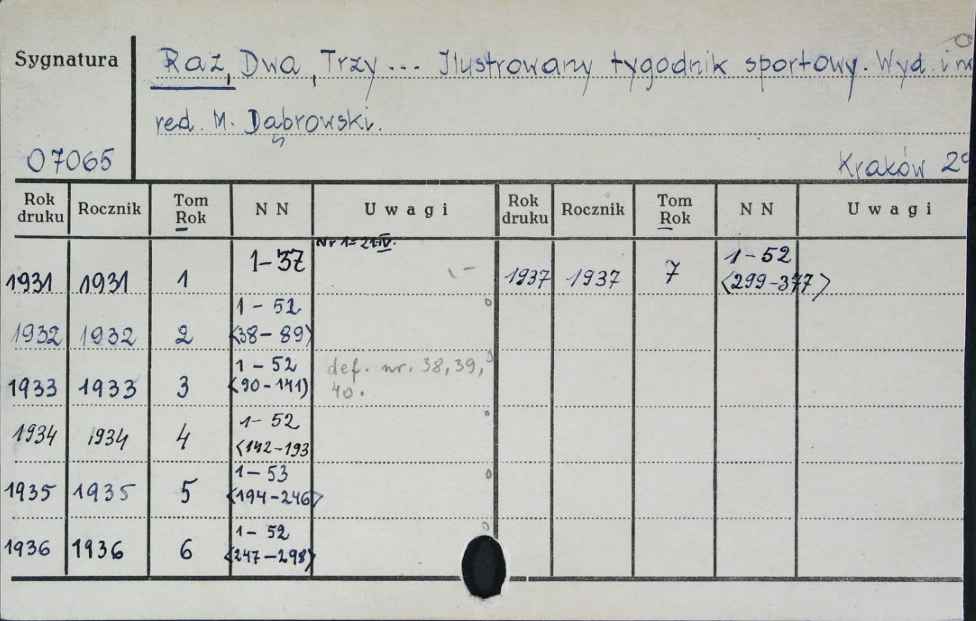 Sygnatura
Raz, Dwa, Trzy... Ilustrowany tygodnik sportowy. Wyd. i
red. M. Dąbrowski.
07065
Kraków
Rok druku Rocznik Tom Rok NN Uwagi Rok druku Rocznik Tom Rok NN Uwagi
Nr 1 = 21.IV.
1931 1931 1 1-37 1937 1937 7 1-52 <299-377>
1932 1932 2 1-52 <38-89>
1933 1933 3 1-52 <90-141) def. nr. 38, 39, 40.
1934 1934 4 1-52 <142-193
1935 1935 5 1-53 <194-246>
1936 1936 6 1-52 <247-298>